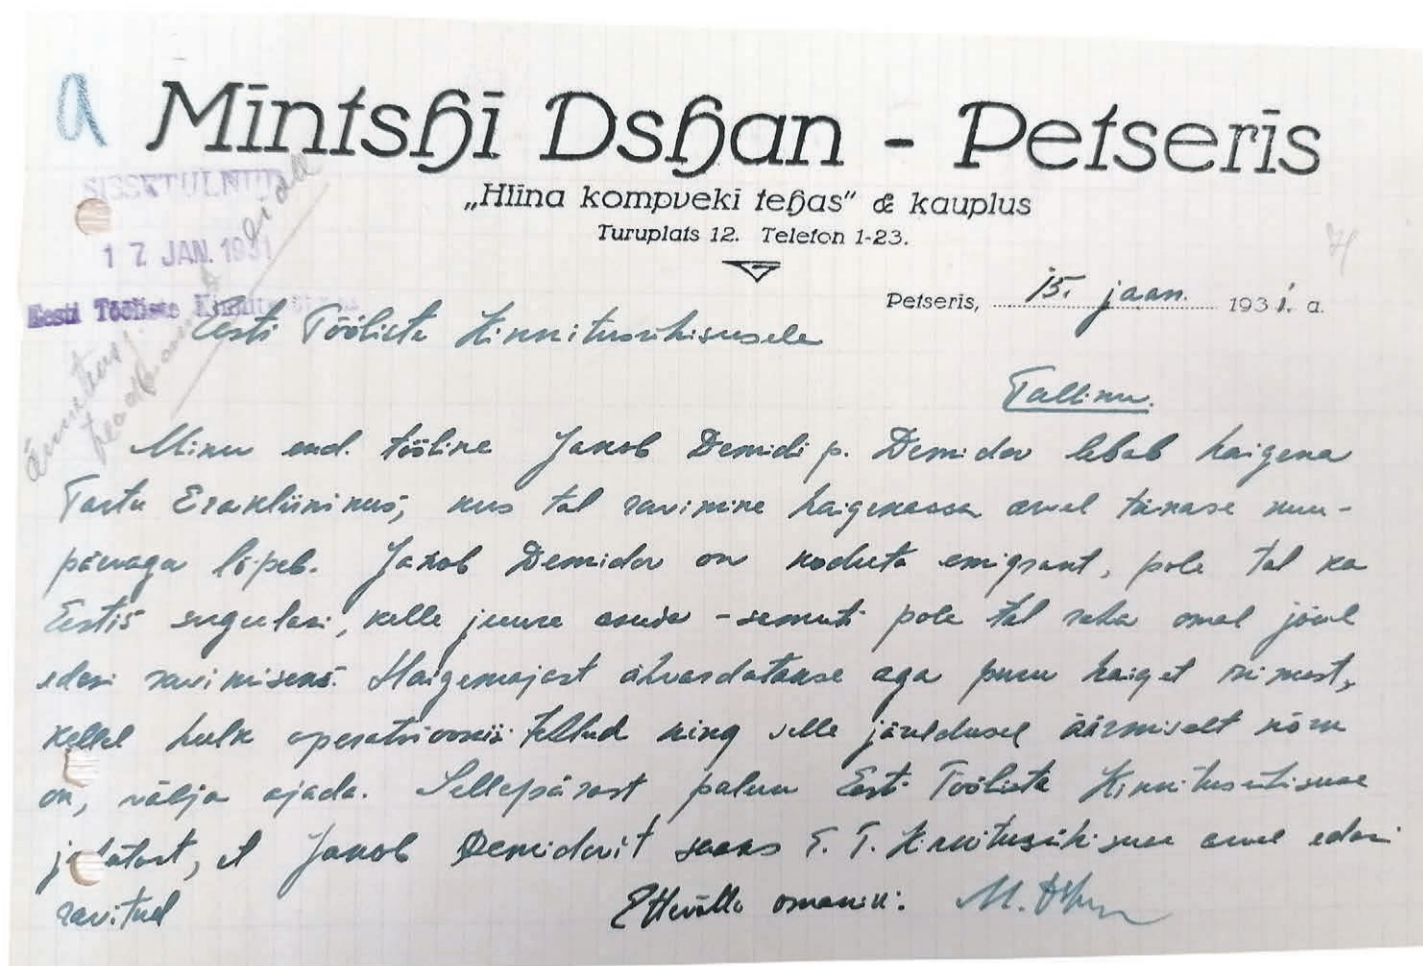 a
Mintshi Dshan - Petseris
„Hiina kompveki tehas" & kauplus
Turuplats 12. Telefon 1-23.
SISSETULNUD
17 JAN. 1931
Eesti Tööliste
Petseris, 15. jaan. 1931. a.
Eesti Tööliste Kinnitusühisusele
Tallinn.
Minu end. tööline Jakob Demidi p. Demidov lebab haigena
Tartu Erakliinikus, kus tal ravimine haigekassa arvel tänase kuu-
päevaga lõpeb. Jakob Demidov on koduta emigrant, pole tal ka
Eestis sugulasi, kelle juure asuda - samuti pole tal raha omal jõul
edasi ravimiseks. Haigemajast ähvardatakse aga puru haiget inimest,
kellel hulk operatsioone tehtud ning selle järeldusel äärmiselt nõrk
on, välja ajada. Sellepärast palun Eesti Tööliste Kinnitusühisuse
juhatust, et Jakob Demidovit saaks E. T. Kinnitusühisuse arvel edasi
ravitud
Ettevõtte omanik: M. Dshan